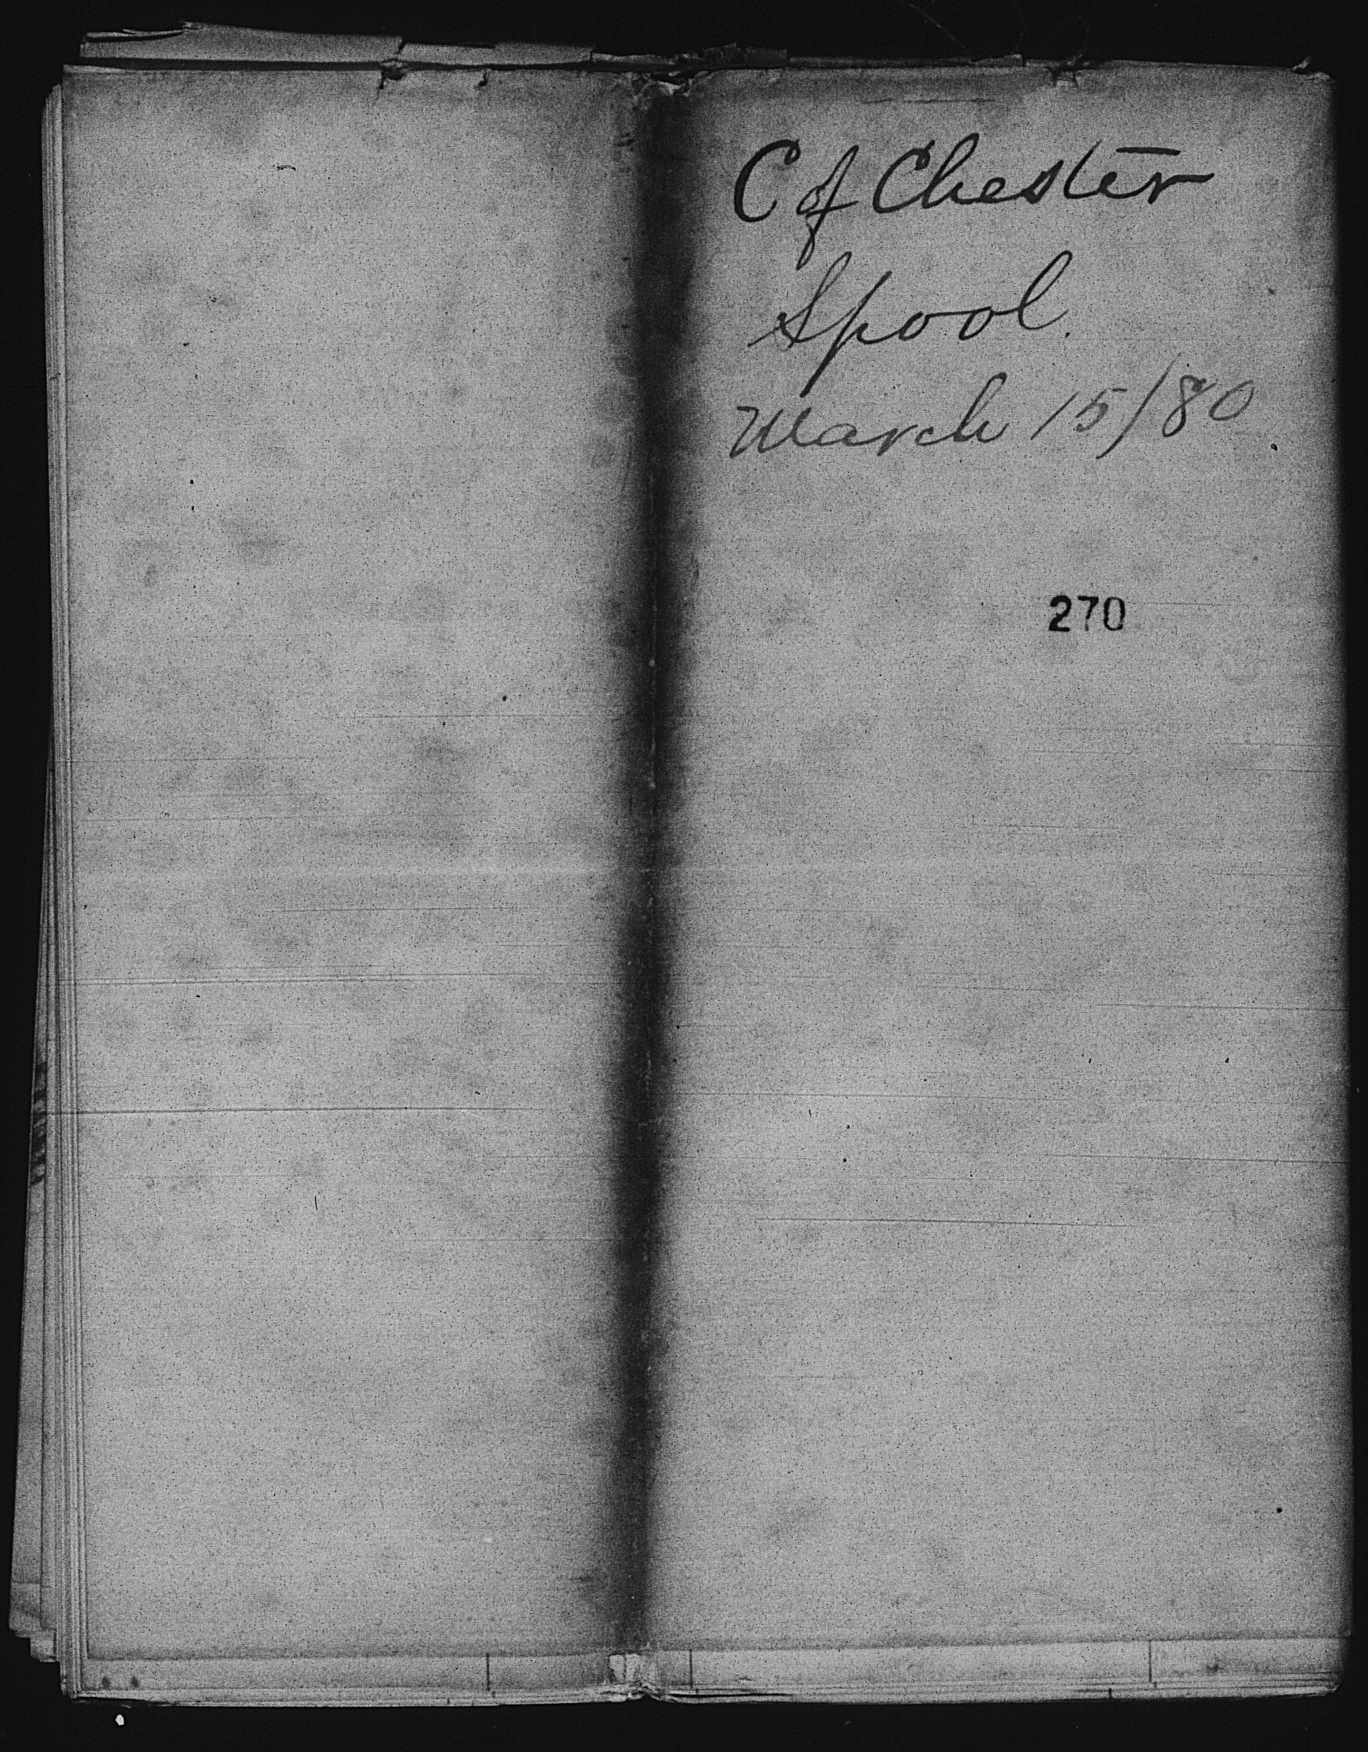 C of Chester
Spool.
March 15/80
270